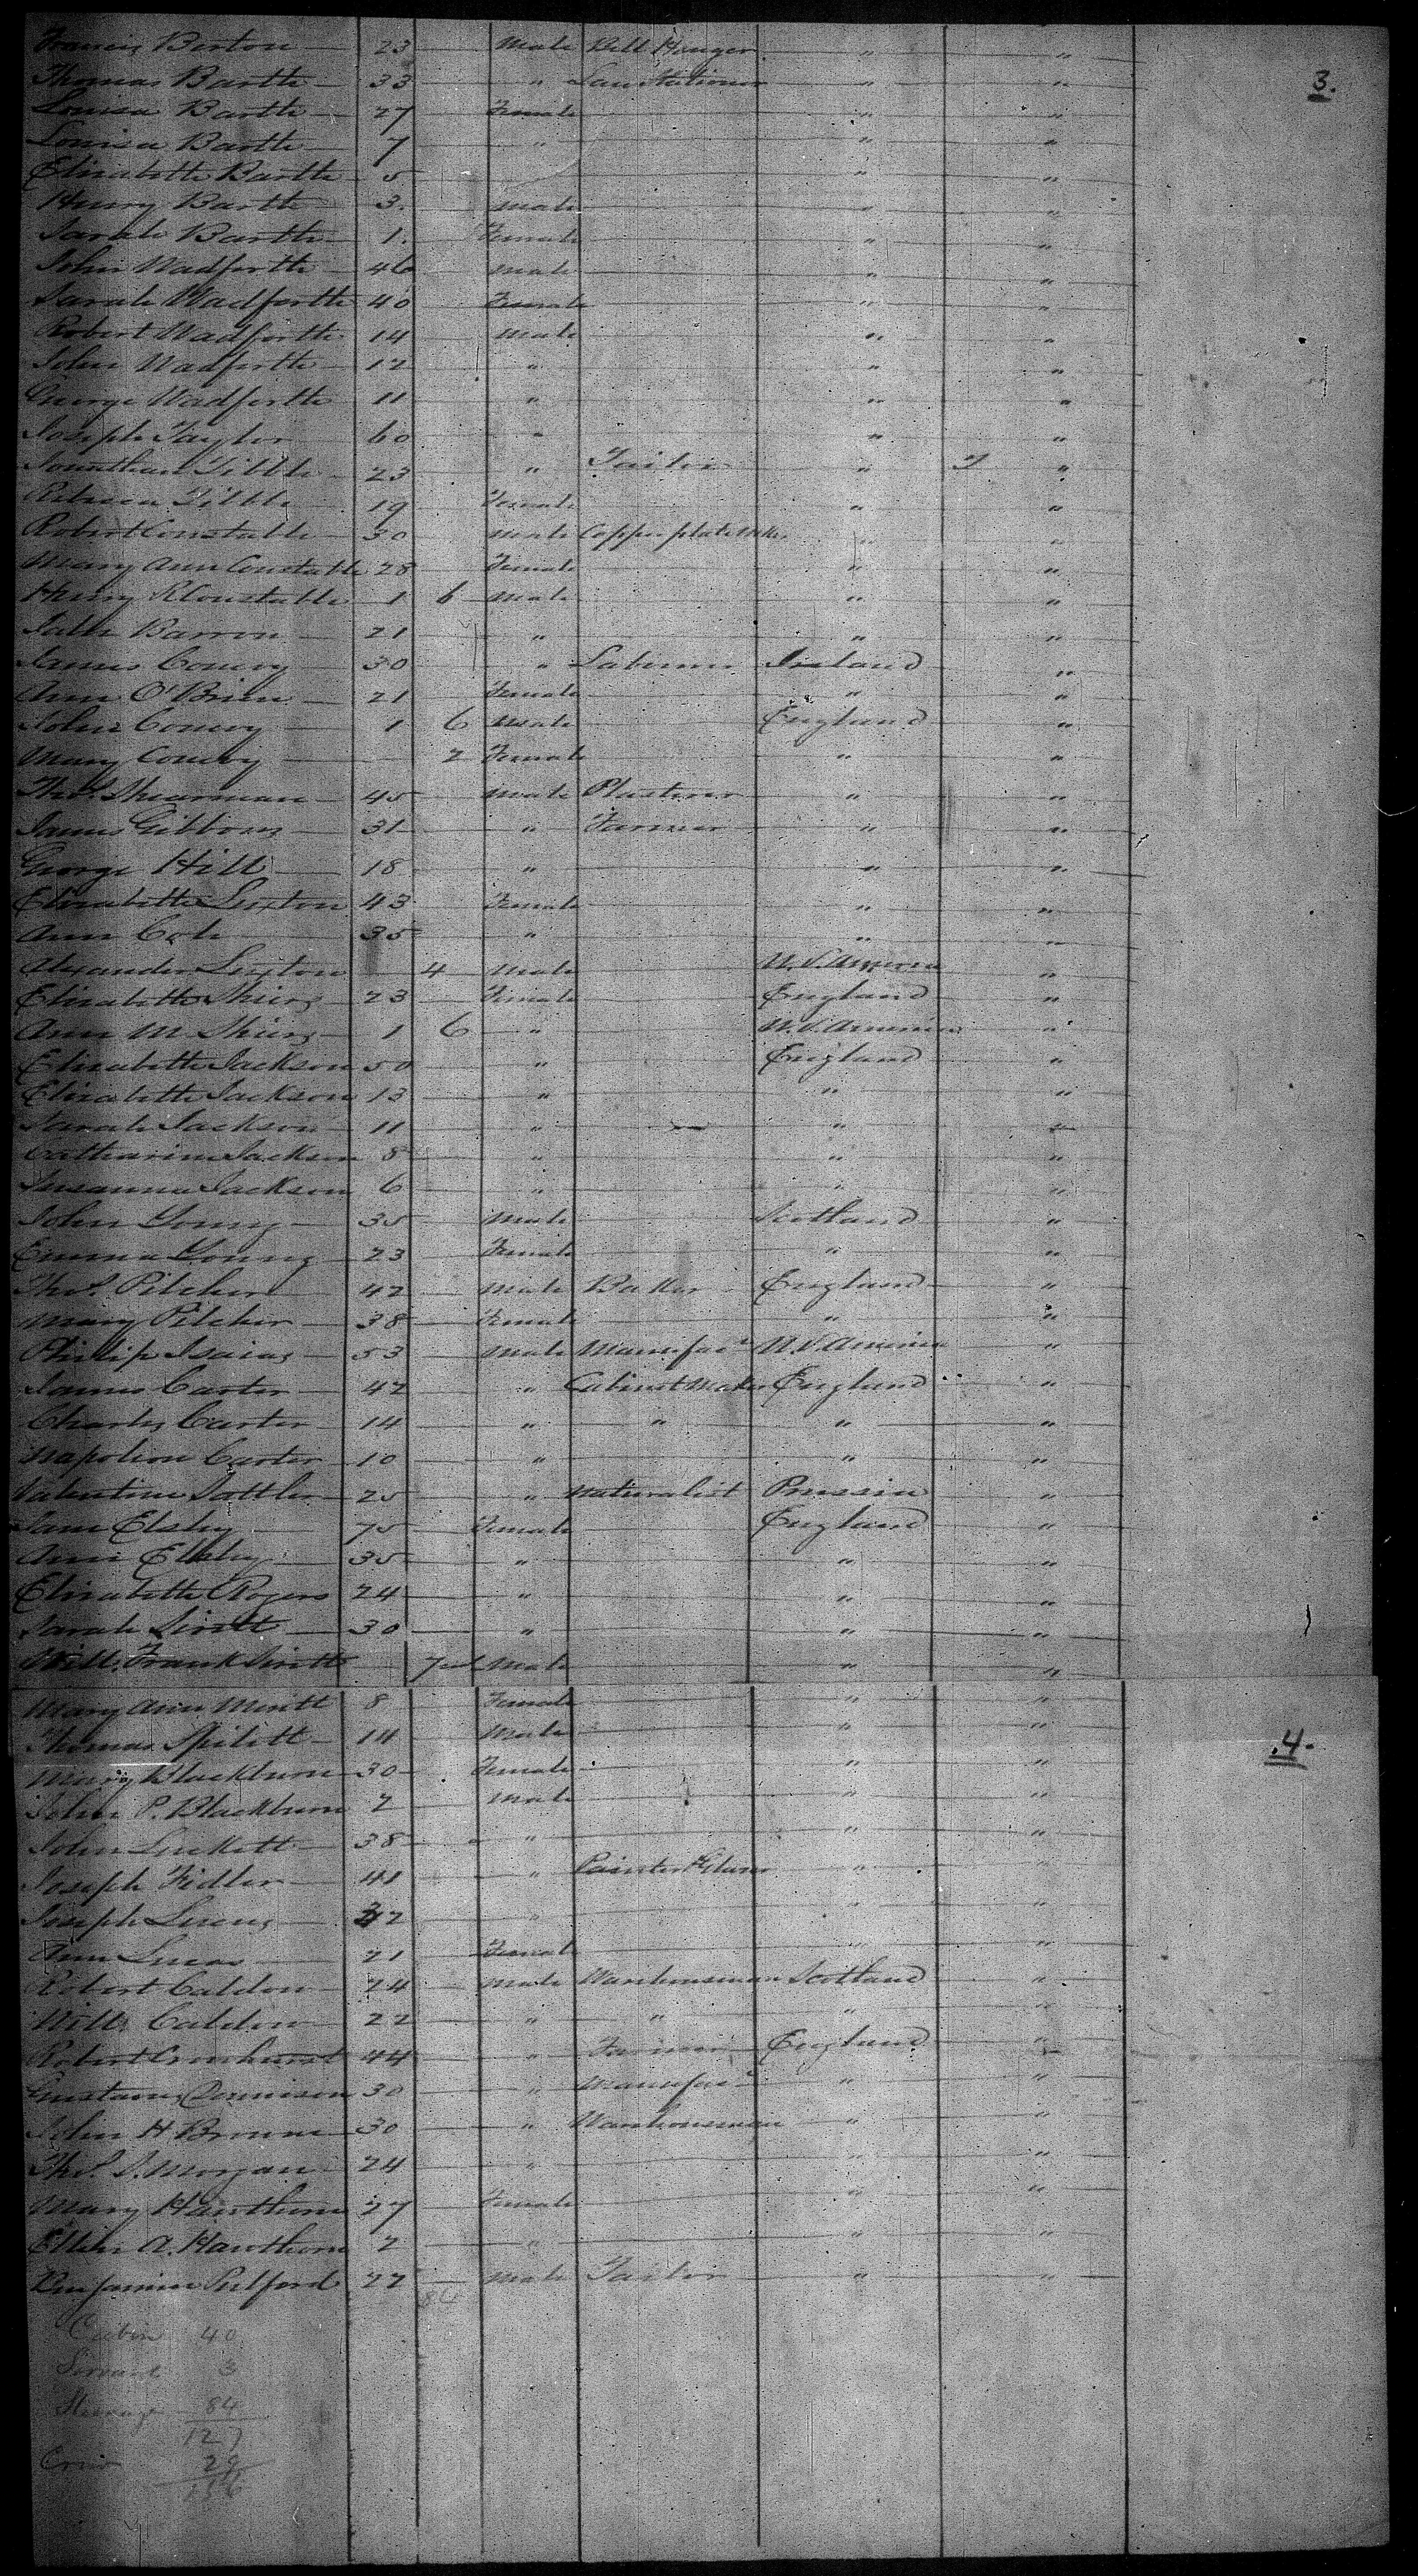 Francis Berton 23 Male Bell Hanger " "
3.
Thomas Barth 33 " Law Stationer " "
Louisa Barth 27 Female " "
Louisa Barth 7 " " "
Elizabeth Barth 5 " "
Henry Barth 3 Male " "
Sarah Barth 1 Female " "
John Wadforth 46 Male " "
Sarah Wadforth 40 Female " "
Robert Wadforth 14 Male " "
John Wadforth 12 " " "
George Wadforth 11 " " "
Joseph Taylor 60 " " "
Jonathan Tibble 23 " Tailor " "
Rebecca Tibble 19 Female " "
Robert Constable 30 Male Copper plate Mkr " "
Mary Ann Constable 28 Female " "
Henry R Constable 1 6 Male " "
Barron 21 " " "
James Convoy 30 " Laborer Ireland "
Ann O'Brien 21 Female " "
John Convoy 1 6 Male England "
Mary Convoy 2 Female " "
Thos. Shearman 45 Male Plasterer " "
James Gibbons 31 " Farmer " "
George Hill 18 " " "
Elizabeth Sexton 43 Female " "
Ann Cole 35 " " "
Alexander 4 Male U.S. America "
Elizabeth 23 Female England "
Ann M 1 6 " U.S. America "
Elizabeth Jackson 50 " England "
Elizabeth Jackson 13 " " "
Sarah Jackson 11 " " "
Catharine Jackson 8 " " "
Susanna Jackson 6 " " "
John Young 35 Male Scotland "
Emma Young 23 Female " "
Thos. Pilcher 42 Male Baker England "
Mary Pilcher 38 Female " "
Philip Isaias 53 Male Manufacr U.S. America "
James Carter 42 " Cabinet Maker England "
Charles Carter 14 " " " "
Napoleon Carter 10 " " "
Valentine Sattler 25 " Naturalist Prussia "
Jane Elsley 75 Female England "
Ann Elsley 35 " " "
Elizabeth Rogers 24 " " "
Sarah Sirett 30 " " "
Will. Frank Sirett Male " "
Mary Ann 8 Female " "
4.
Thomas 14 Male " "
Mary Blackburn 30 Female " "
John P. Blackburn 2 Male " "
John Luckett 38 " " "
Joseph Fidler 41 " Painter & Glazier "
Joseph Lucas " "
Ann Lucas 21 Female " "
Robert Caldow 24 Male Warehouseman Scotland "
Will. Caldow 22 " " " "
Robert 44 " Farmer England "
Gustavus 30 " Manufacr " "
John H Browne 30 " Warehouseman " "
Thos. S. Morgan 24 " " "
Mary Hawthorn 27 Female " "
Ellen A. Hawthorn 2 " " "
Benjamin Pulford 22 Male Tailor " "
84
Cabin 40
Servants 3
Steerage 84
127
Crew 29
156